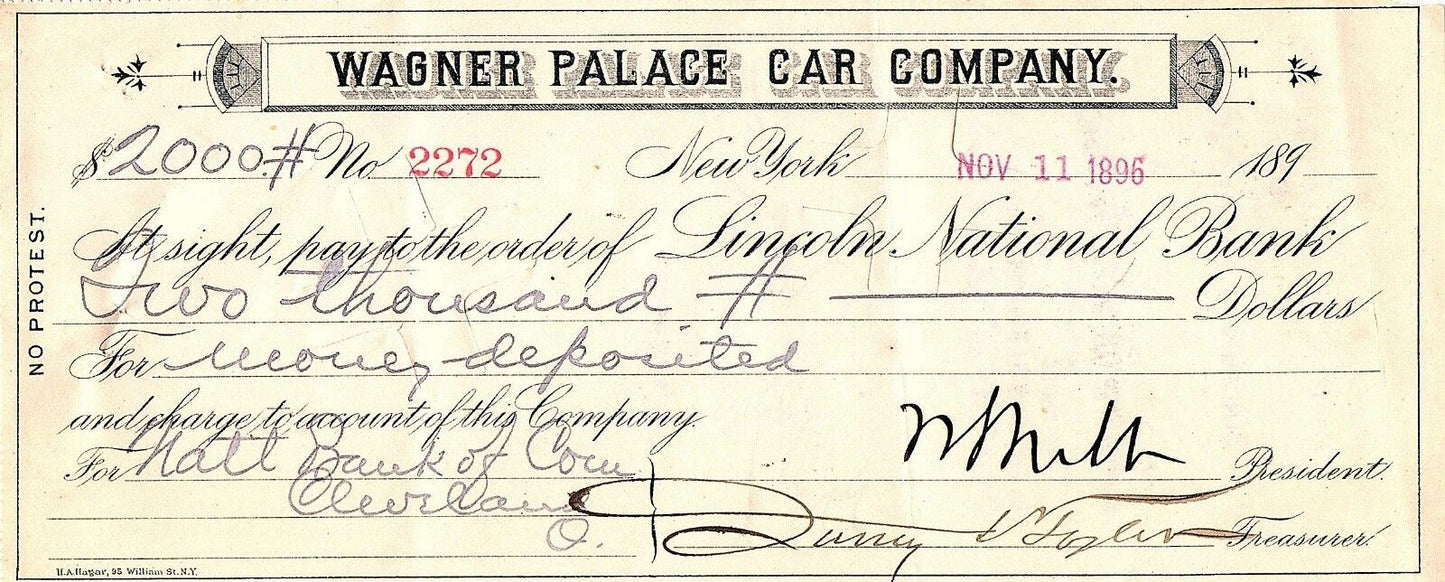 WAGNER PALACE CAR COMPANY.
$2000.# No 2272 New York NOV 11 1896 189
At sight, pay to the order of Lincoln National Bank
Two thousand # Dollars
For money deposited
and charge to account of this Company.
For Natl Bank of Com President.
Cleveland
O. Treasurer.
NO PROTEST.
H.A. Hagar, 95 William St. N.Y.